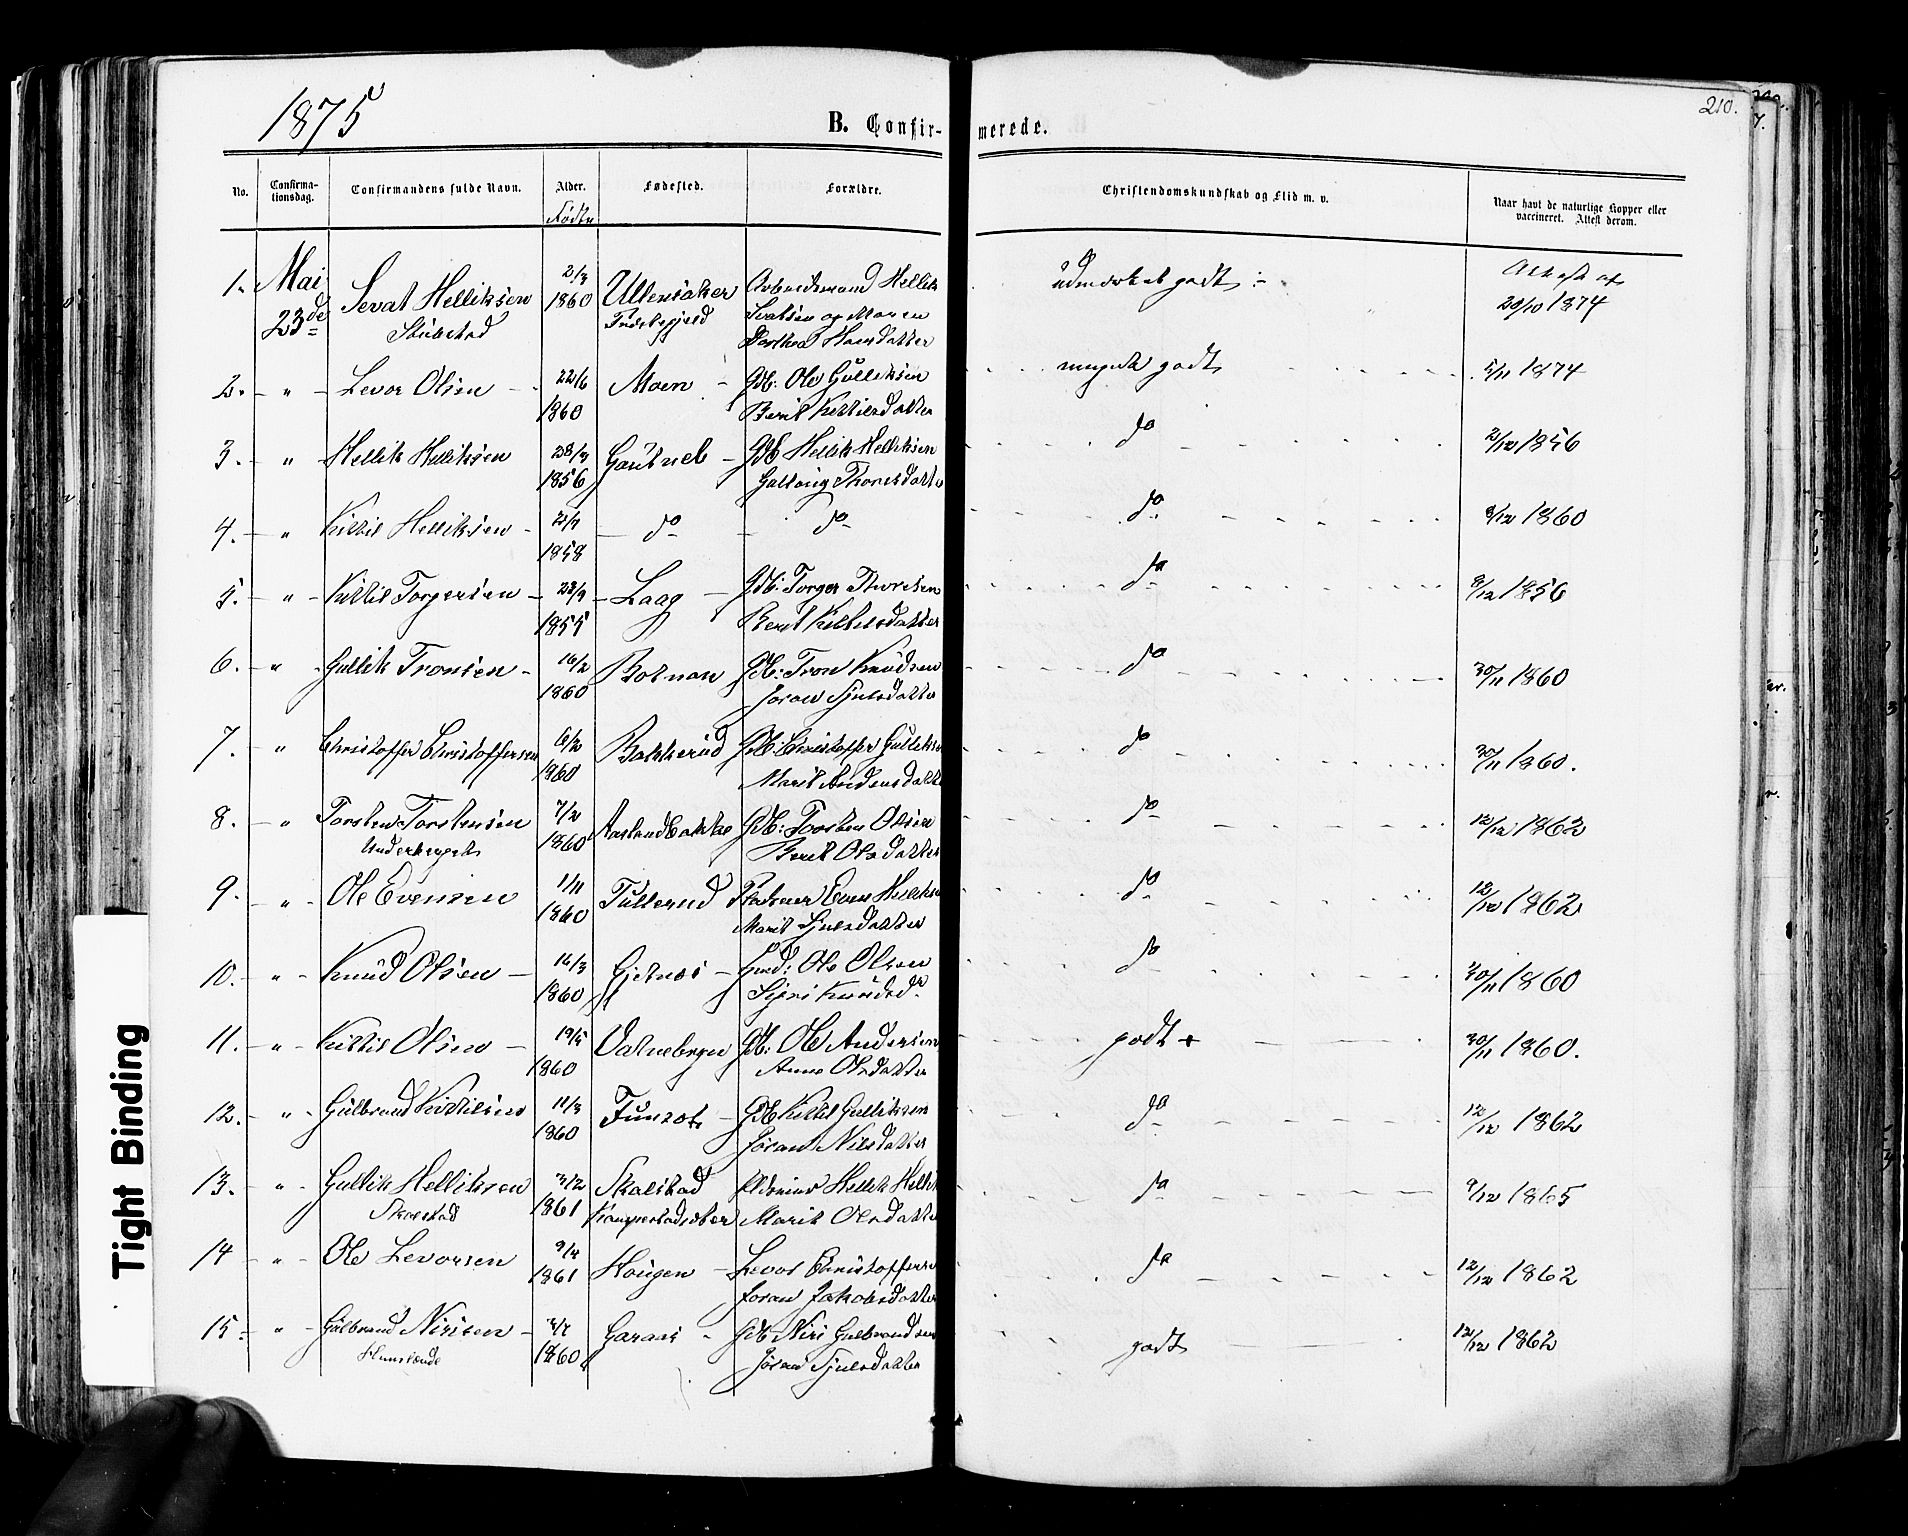 1875
B. Confirmerede.
210.
No. Confirmationsdag. Confirmandens fulde Navn. Alder. Fødested. Forældre. Christendomskundskab og Flid m. v. Naar havt de naturlige Kopper eller vaccineret. Attest derom.
Født
1. Mai 23de Sevat Helliksen 2/3 1860 Ullensaker Arbeidsmand Hellik
Sevatsen og Maren
Hansdatter godt 20/10 1874
2. " Levor Olsen 22/6 1860 Moen Gdb: Ole Gulliksen
Berit Kittilsdatter meget godt 5/11 1874
3. " Hellik Helliksen 28/3 1856 Gdb Hellik Helliksen
Thoresdatter do 2/12 1856
4. " Kittil Helliksen 1858 do do do 8/12 1860
5. " Kittil Torgersen 1855 Laag Gdb: Torger Thoresen
Berit Kittilsdatter do 8/12 1856
6. " Gullik Tronsen 16/2 1860 Botnan Gdb: Tron Knudsen
Joran Sjulsdatter do 30/11 1860
7. " Christoffer Christoffersen 6/2 1860 Bakkerud Gdb: Christoffer Gulliksen
Marit do 30/11 1860.
8. " Torsten Torstensen
Underberget 7/2 1860 Aaslandbakke Gdb: Torsten Olsen
Berit Olsdatter do 12/12 1862
9. " Ole Evensen 11/11 1860 Tullerud Even
Marit Sjulsdatter do 12/12 1862
10. " Knud Olsen 16/3 1860 Gjetnes Ole Olsen
Sigri Knudsd. do 30/11 1860
11. " Kittil Olsen 19/5 1860 Vatnebergn Gdb: Ole Andersen
Anne Olsdatter godt + 30/11 1860.
12. " Gulbrand Kittilsen 11/3 1860 Gdb Kittil Gulliksen
Joran Nilsdatter do 12/12 1862
13. " Gullik Helliksen 3/2 1861 Skalstad Hellik
Marit Olsdatter do 9/12 1865
14 " Ole Levorsen 9/4 1861 Haugen Levor Christoffersen
Joran Jakobsdatter do 12/12 1862
15. " Gulbrand Nirisen 1860 Garaas Gdb Niri Gulbrandsen
Joran Sjulsdatter godt 12/12 1862
Tight Binding